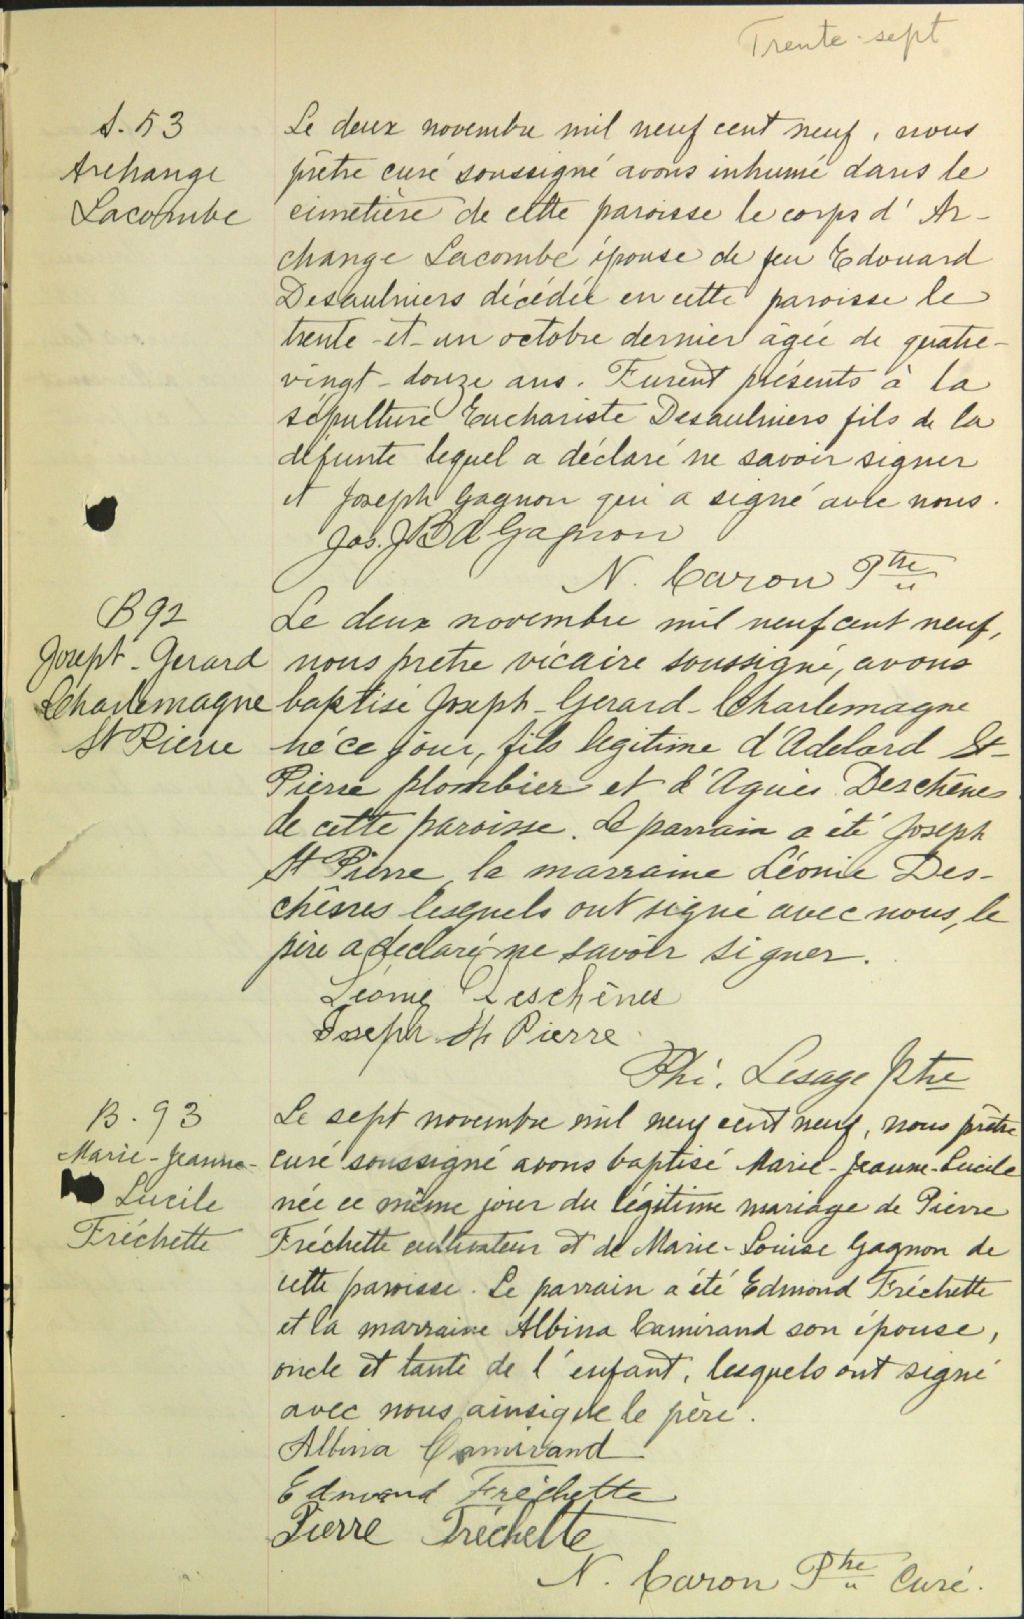 Trente-sept
S. 53
Archange
Lacombe
Le deux novembre mil neuf cent neuf, nous
prêtre curé soussigné avons inhumé dans le
cimetière de cette paroisse le corps d'Ar-
change Lacombe épouse de feu Edouard
Desaulniers décédée en cette paroisse le
trente-et-un octobre dernier âgée de quatre-
vingt-douze ans. Furent présents à la
sépulture Euchariste Desaulniers fils de la
défunte lequel a déclaré ne savoir signer
et Joseph Gagnon qui a signé avec nous.
Jos. J B A Gagnon
N. Caron Ptre
B 92
Joseph-Gerard
Charlemagne
St Pierre
Le deux novembre mil neuf cent neuf,
nous pretre vicaire soussigné, avons
baptisé Joseph-Gerard-Charlemagne
né ce jour, fils legitime d'Adelard St-
Pierre plombier et d'Agnès Deschênes
de cette paroisse. Le parrain a été Joseph
St Pierre, la marraine Léonie Des-
chênes lesquels ont signé avec nous, le
père a declaré ne savoir signer.
Léonie Deschênes
Joseph St Pierre
Phi. Lesage Ptre
B. 93
Marie-Jeanne-
Lucile
Fréchette
Le sept novembre mil neuf cent neuf, nous prêtre
curé soussigné avons baptisé Marie-Jeanne-Lucile
née ce même jour du légitime mariage de Pierre
Fréchette cultivateur et de Marie-Louise Gagnon de
cette paroisse. Le parrain a été Edmond Fréchette
et la marraine Albina Camirand son épouse,
oncle et tante de l'enfant, lesquels ont signé
avec nous ainsi que le père.
Albina Camirand
Edmond Fréchette
Pierre Fréchette
N. Caron Ptre Curé.